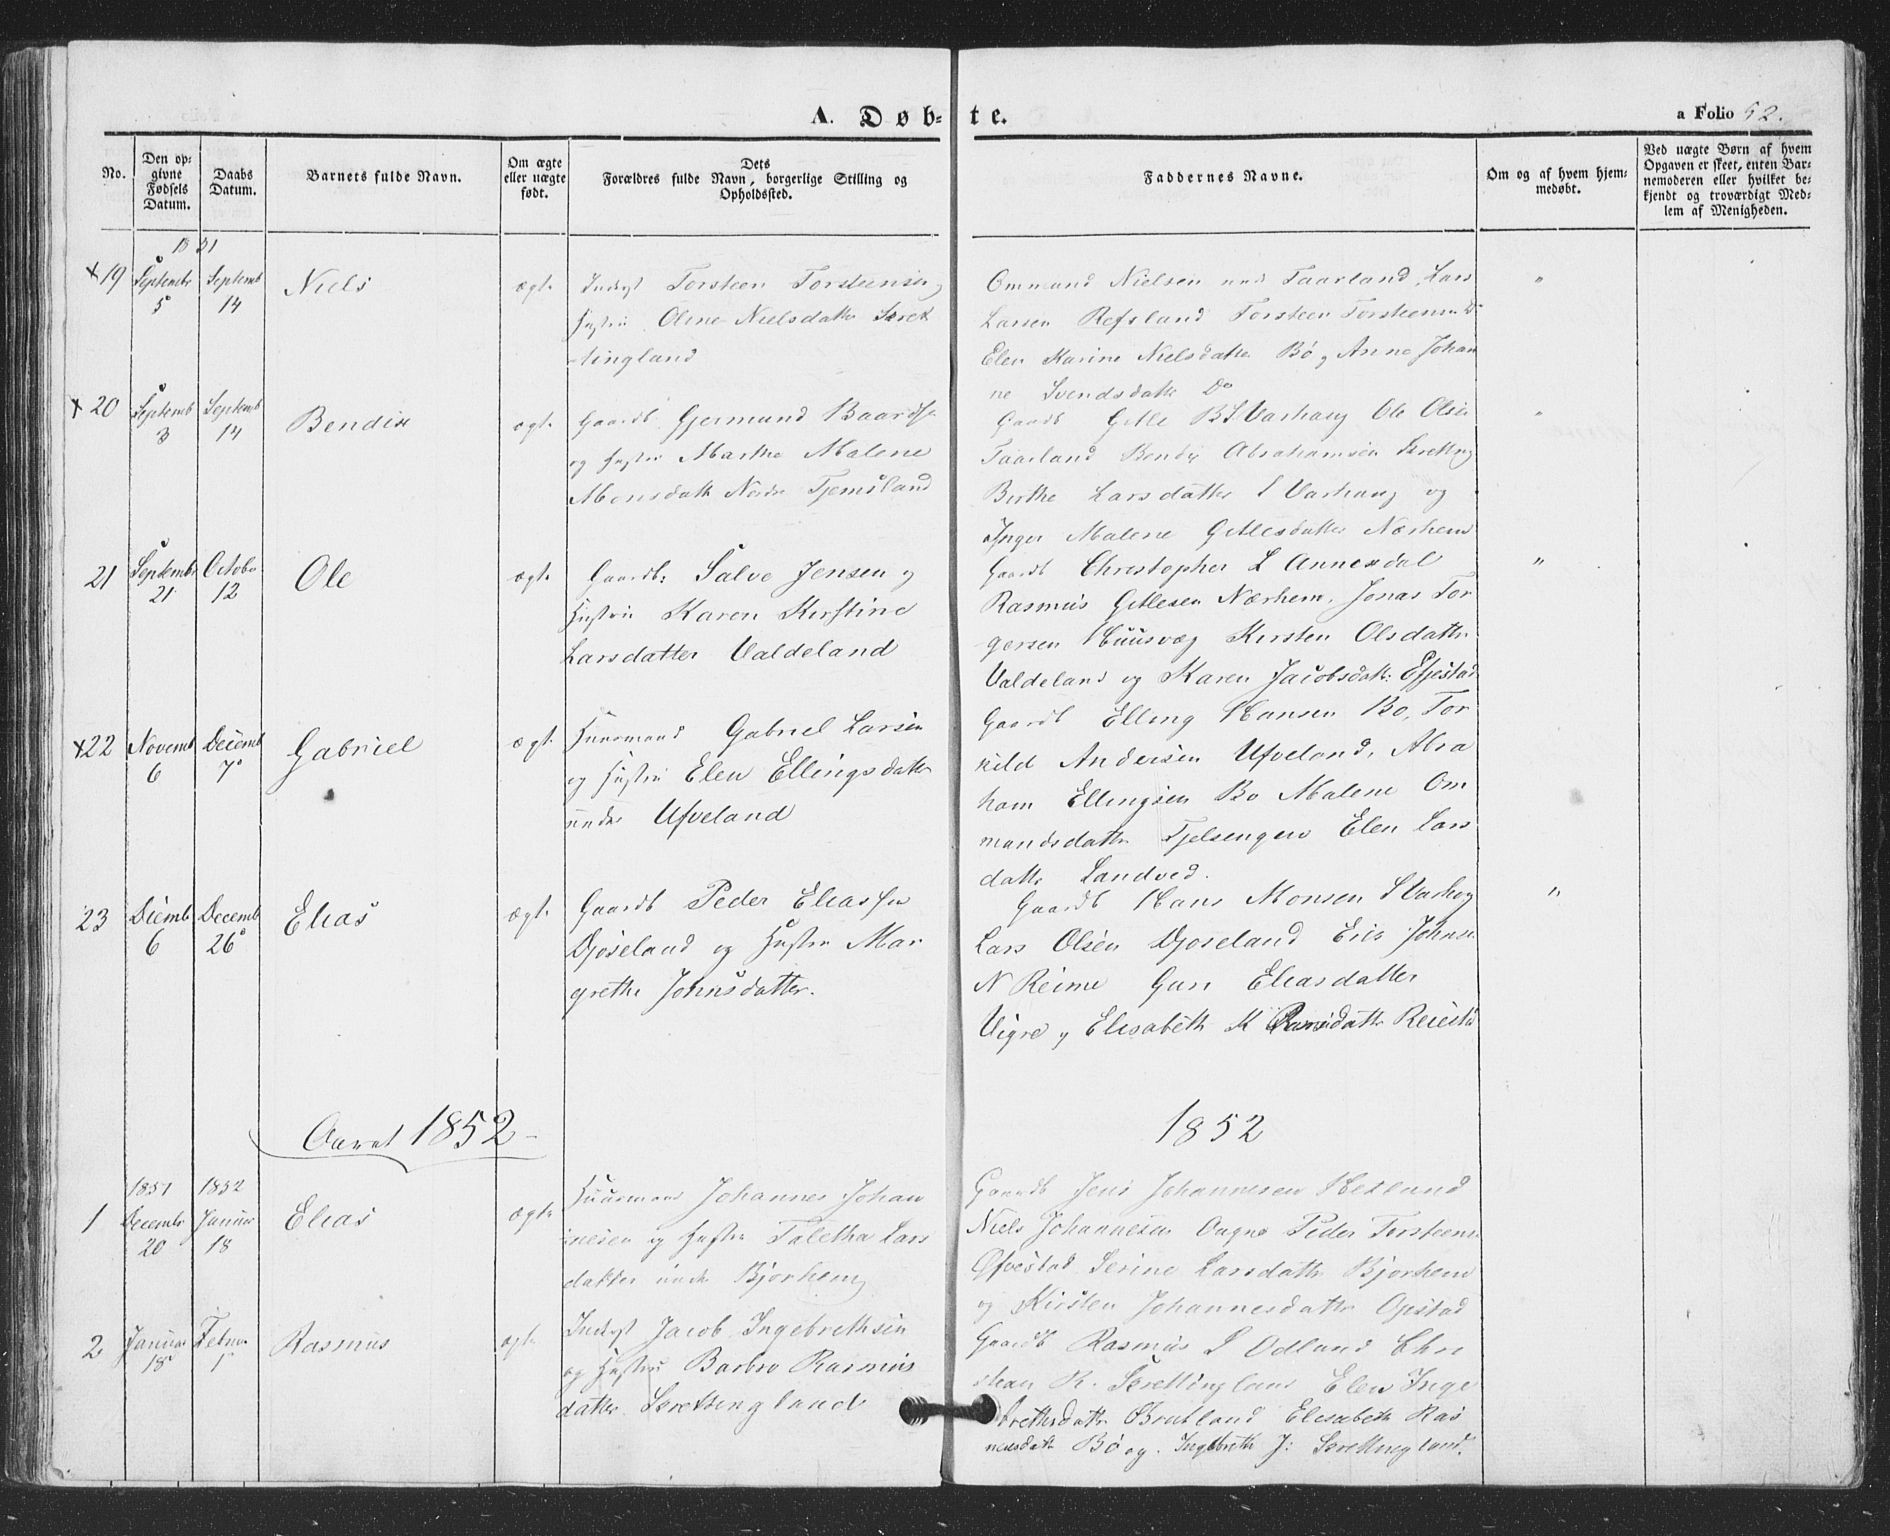 A. Døb-
te.
a Folio 52.
No.
Den op-
givne
Fødsels
Datum.
Daabs
Datum.
Barnets fulde Navn.
Om ægte
eller uægte
født.
Dets
Forældres fulde Navn, borgerlige Stilling og
Opholdssted.
Faddernes Navne.
Om og af hvem hjem-
medøbt.
Ved uægte Børn af hvem
Opgaven er skeet, enten Bar-
nemoderen eller hvilket be-
kjendt og troværdigt Med-
lem af Menigheden.
19
Septembr
5
Septemb
14
Niels
ægt.
Torsteen Torsteensen
Hustru Oline Nielsdatter Skret
tingland
Ommund Nielsen und Taarland, Lars
Larsen Refsland Torsteen Torsteensen
Elen Karine Nielsdatte Bø og Anne Johan
ne Svendsdatte Do
"
20
Septemb
3
Septemb
14
Bendix
ægt.
Gaardb. Gjermund Baards
og Hustru Marthe Malene
Monsdatt Nordr Tjemsland
Gaardb Gitle B S Varhaug Ole Olsen
Taarland Bendix Abrahamsen Skretting
Birthe Larsdatter S Varhaug og
Inger Malene Gitlesdatter Nærhem
"
21
Septembr
21
Octobr
12
Ole
ægt.
Gaardb: Salve Jensen og
Hustru Karen Kirstine
Larsdatter Valdeland
Gaardb Christopher L Annesdal
Rasmus Gitlesen Nærhem, Jonas Tor
gersen Huusvæg Kirsten Olsdatter
Valdeland og Karen Jacobsdatt: Efjestad
"
22
Novemb
6
Decemb
7
Gabriel
ægt.
Huusmand Gabriel Larsen
og Hustru Elen Ellingsdatter
under Ufveland
Gaardb Elling Hansen Bø, Tor
kild Andersen Ufveland, Abra
ham Ellingsen Bø Malene Om
mundsdatter Tjelsengen Elen Lars
datte Landved.
23
Decemb
6
Decemb
26
Elias
ægt.
Gaardb Peder Eliassen
Djøseland og Hustru Mar
grethe Johnsdatter.
Gaardb Hans Monsen S Varhog
Lars Olsen Djøseland Eric Johns
N Reime Guri Eliasdatter
Vigre og Elisabeth K datter
"
Aaret 1852
1852
1
1851
Decembr
20
1852
Januar
18
Elias
ægte
Huusmand Johannes Johan
nesen og Hustru Taletha Lars
datter und Bjorhem
Gaardb Jens Johannesen Hetland
Niels Johannesen Ougne Peder Torsteens
Øfvestad Serine Larsdatter Bjorhem
og Kirsten Johannesdatter Opstad
2
Januar
18
Februar
1
Rasmus
ægt.
Jacob Ingebrethsen
og Hustru Barbro Rasmus
datter Skrettingland
Gaardb Rasmus S Odland Chri
stian R. Skrettingland Elen Inge
brethsdatter Brutland Elisabeth Ras
musdatt Bø og Ingebreth J: Skrettingland.